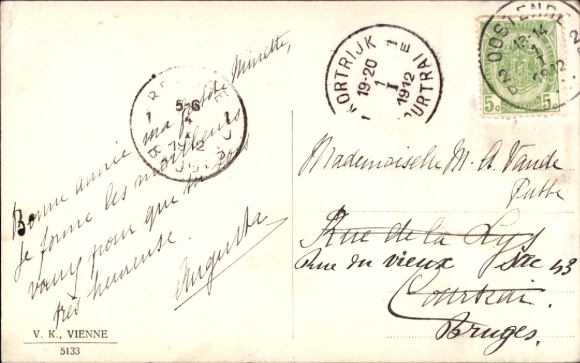 Bonne année ma petite Minette,
Je forme les meilleurs
vœux pour que tu sois
très heureuse.
Augusta
V. K., VIENNE
5133
KORTRIJK 1E
19-20
1
I
1912
COURTRAI
OOSTENDE
13-14
1912
5c 5c
5-6
Mademoiselle M. A. Vande
Putte
Rue de la Lys
Rue du vieux Sac 43
Courtrai.
Bruges.